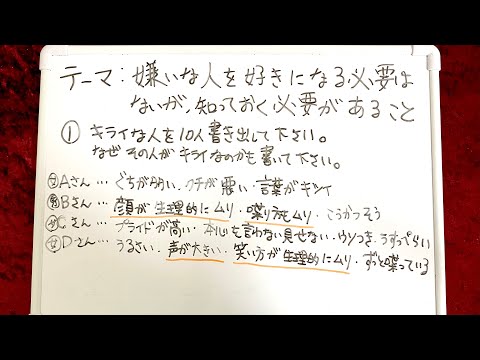 テーマ：嫌いな人を好きになる必要は
ないが、知っておく必要があること
① キライな人を10人書き出して下さい。
なぜその人がキライなのかも書いて下さい。
Aさん…ぐちが多い、クチが悪い・言葉がキツイ
Bさん…顔が生理的にムリ・喋り方もムリ・こうかつそう
Cさん…プライドが高い・本心を言わない見せない・ウソつき・うすっぺらい
女 Dさん…うるさい・声が大きい・笑い方が生理的にムリ・ずっと喋っている